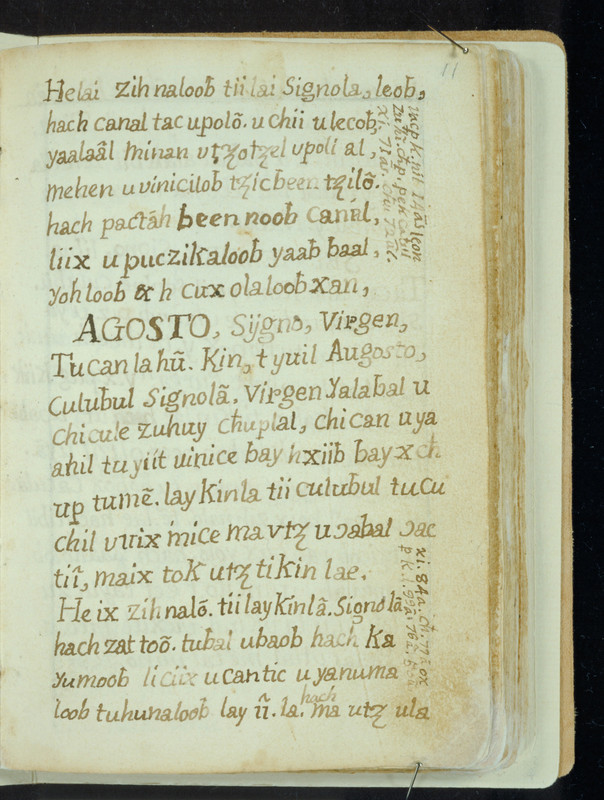 11
Helai zihnaloob tii lai Signola, leob,
hach canal tac upolõ. u chii u lecob,
yaalaâl minan vtꜩotꜩel upoli al,
mehen u vinicilob tꜩicbeen tꜩilõ.
hach pactáh been noob canal,
liix u puczikaloob yaab baal,
yohloob & h cux olaloob xan,
AGOSTO, Sijgno, Virgen,
Tucan lahũ. Kin, t yuil Augosto,
culubul Signolã, Virgen Yalabal u
chicule zuhuy chuplal, chi can u ya
ahil tu yiit uinice bay hxiib bay x ch
up tumẽ. lay Kinla tii culubul tu cu
chil vuixinice ma vtꜩ uɔabal ɔac
tiĩ, maix tok utꜩ ti kin lae.
He ix zihnalõ. tii lay kinlã. Signolã
hach zat toõ. tubal ubaob hach Ka
yumoob liciix u cantic u yanuma
loob tuhunaloob lay iĩ. la. hach ma utꜩ ula